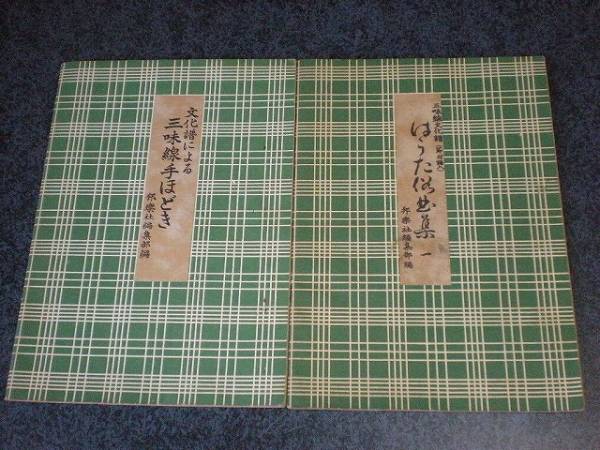 文化譜による
三味線手ほどき
邦楽社編集部編
三味線文化譜
はうた俗曲集 一
邦楽社編集部編